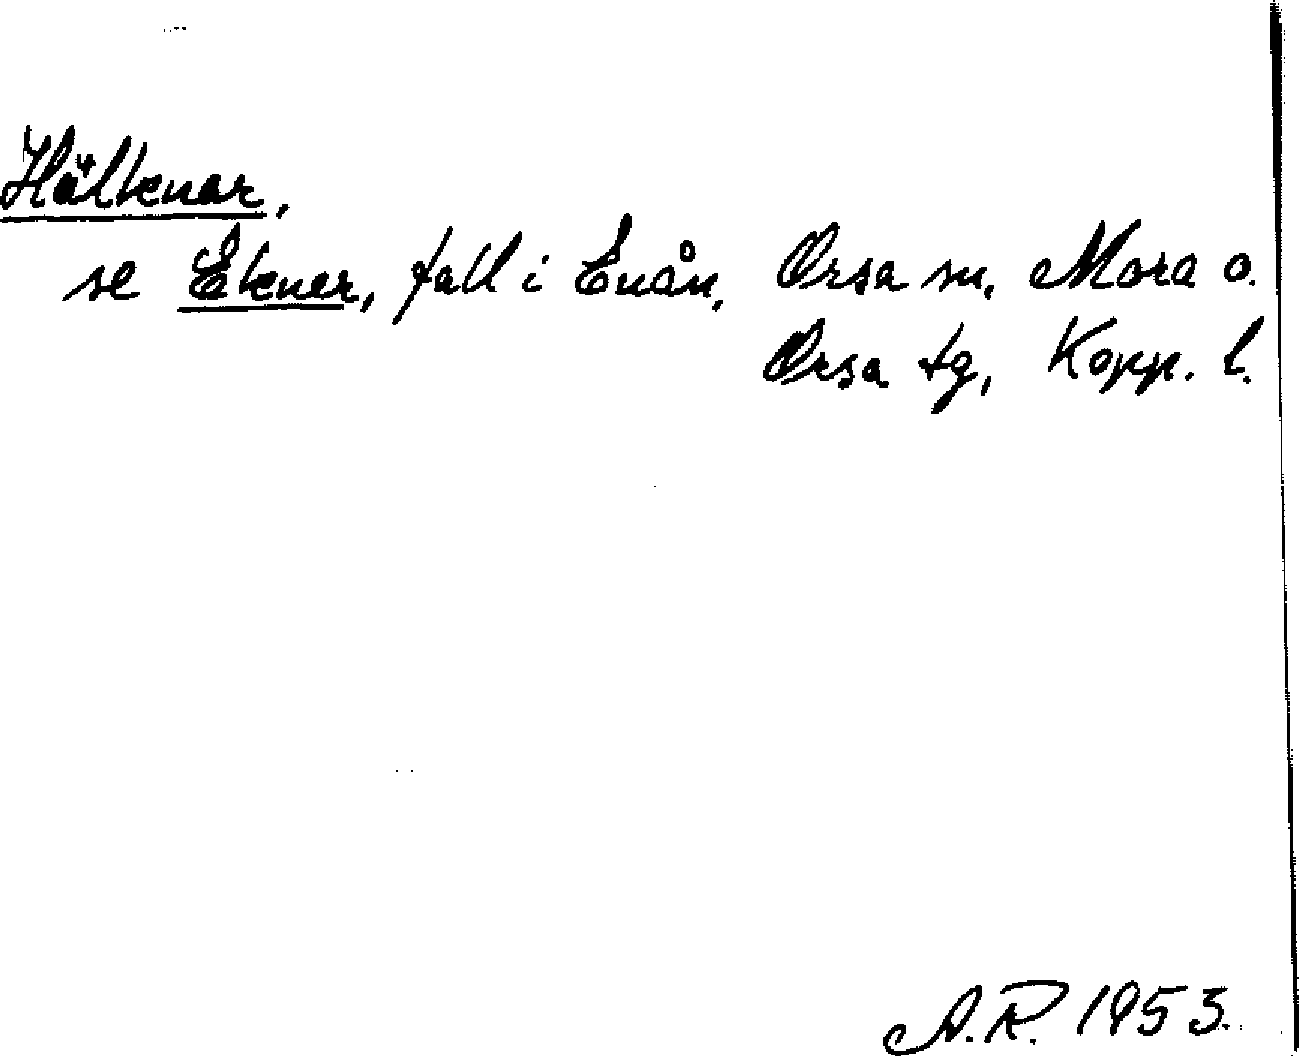 Hälknar,
se Ekner, fall i Enån, Orsa sn, Mora o.
Orsa tg, Kopp. l.
A.R. 1953.